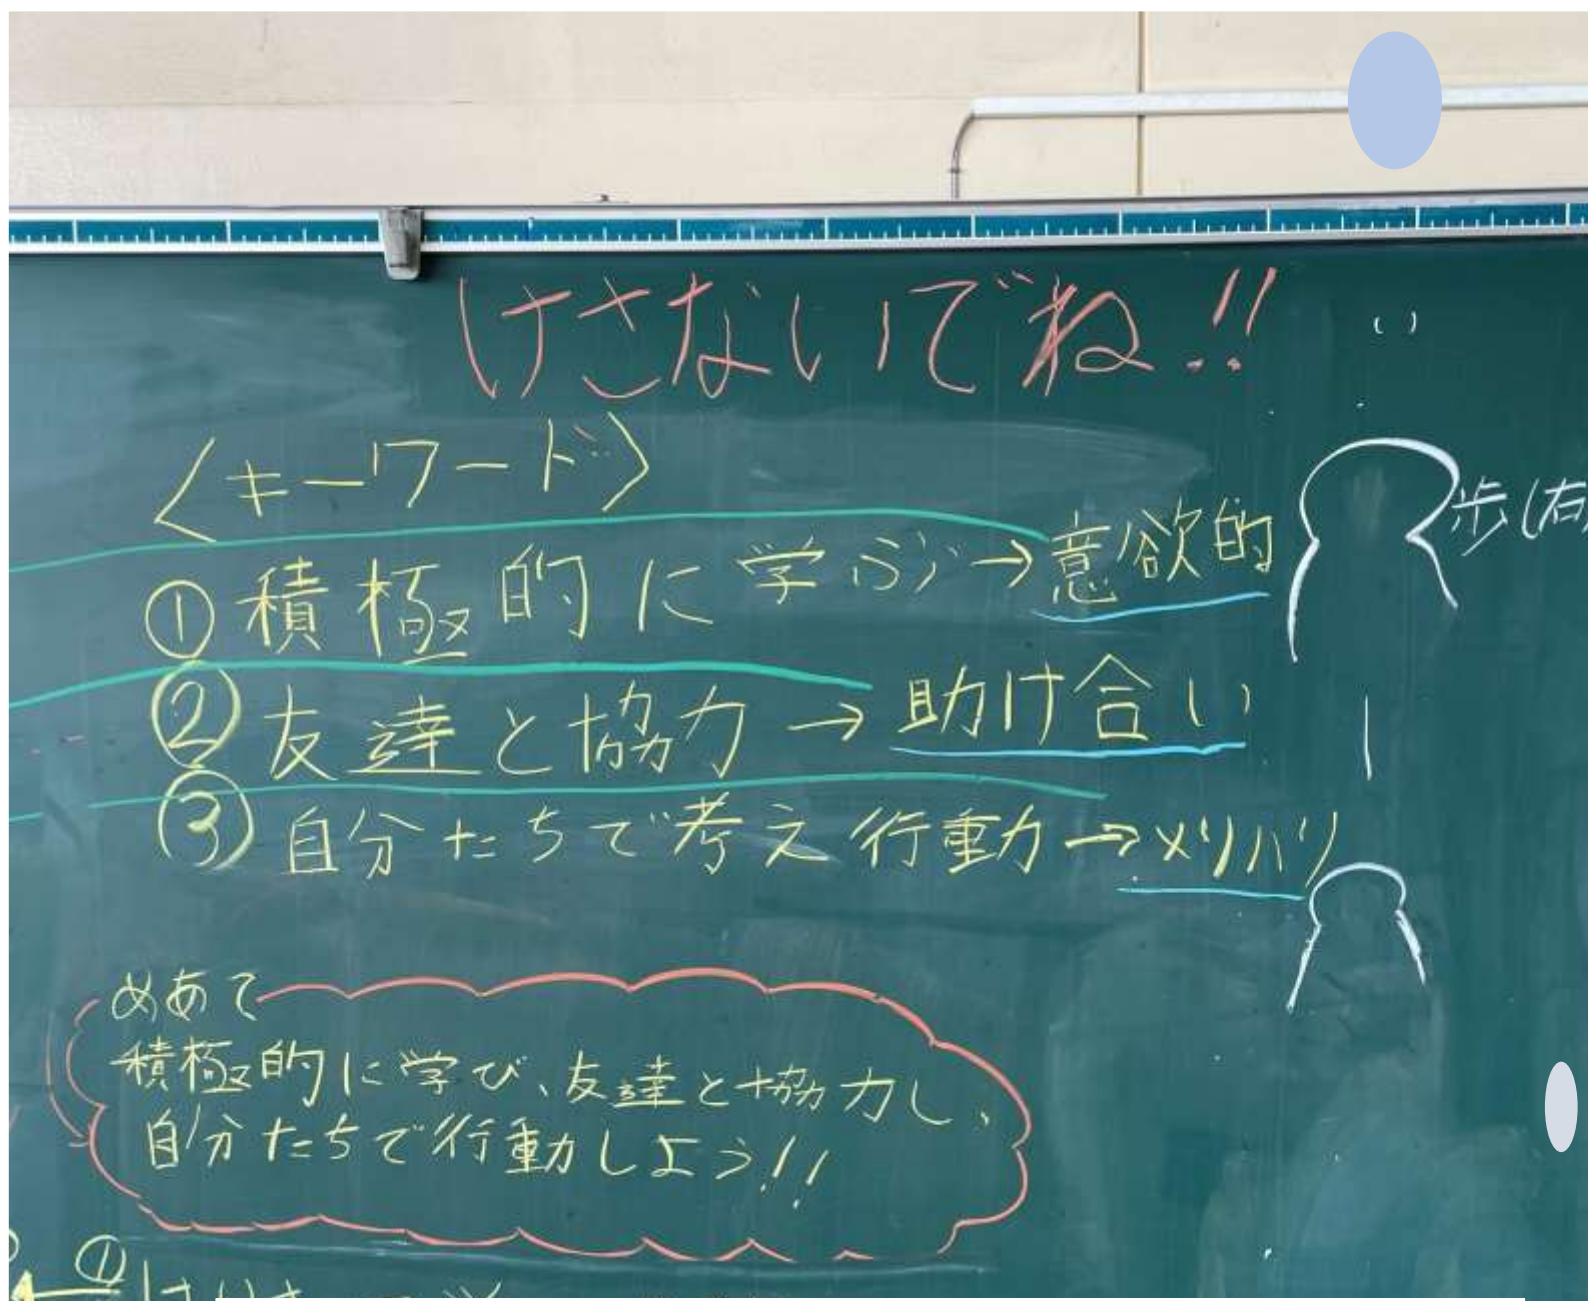 けさないでね!!
〈キーワード〉
①積極的に学ぶ→意欲的
②友達と協力→助け合い
③自分たちで考え行動→メリハリ
歩(右
めあて
積極的に学び、友達と協力し、
自分たちで行動しよう!!
①